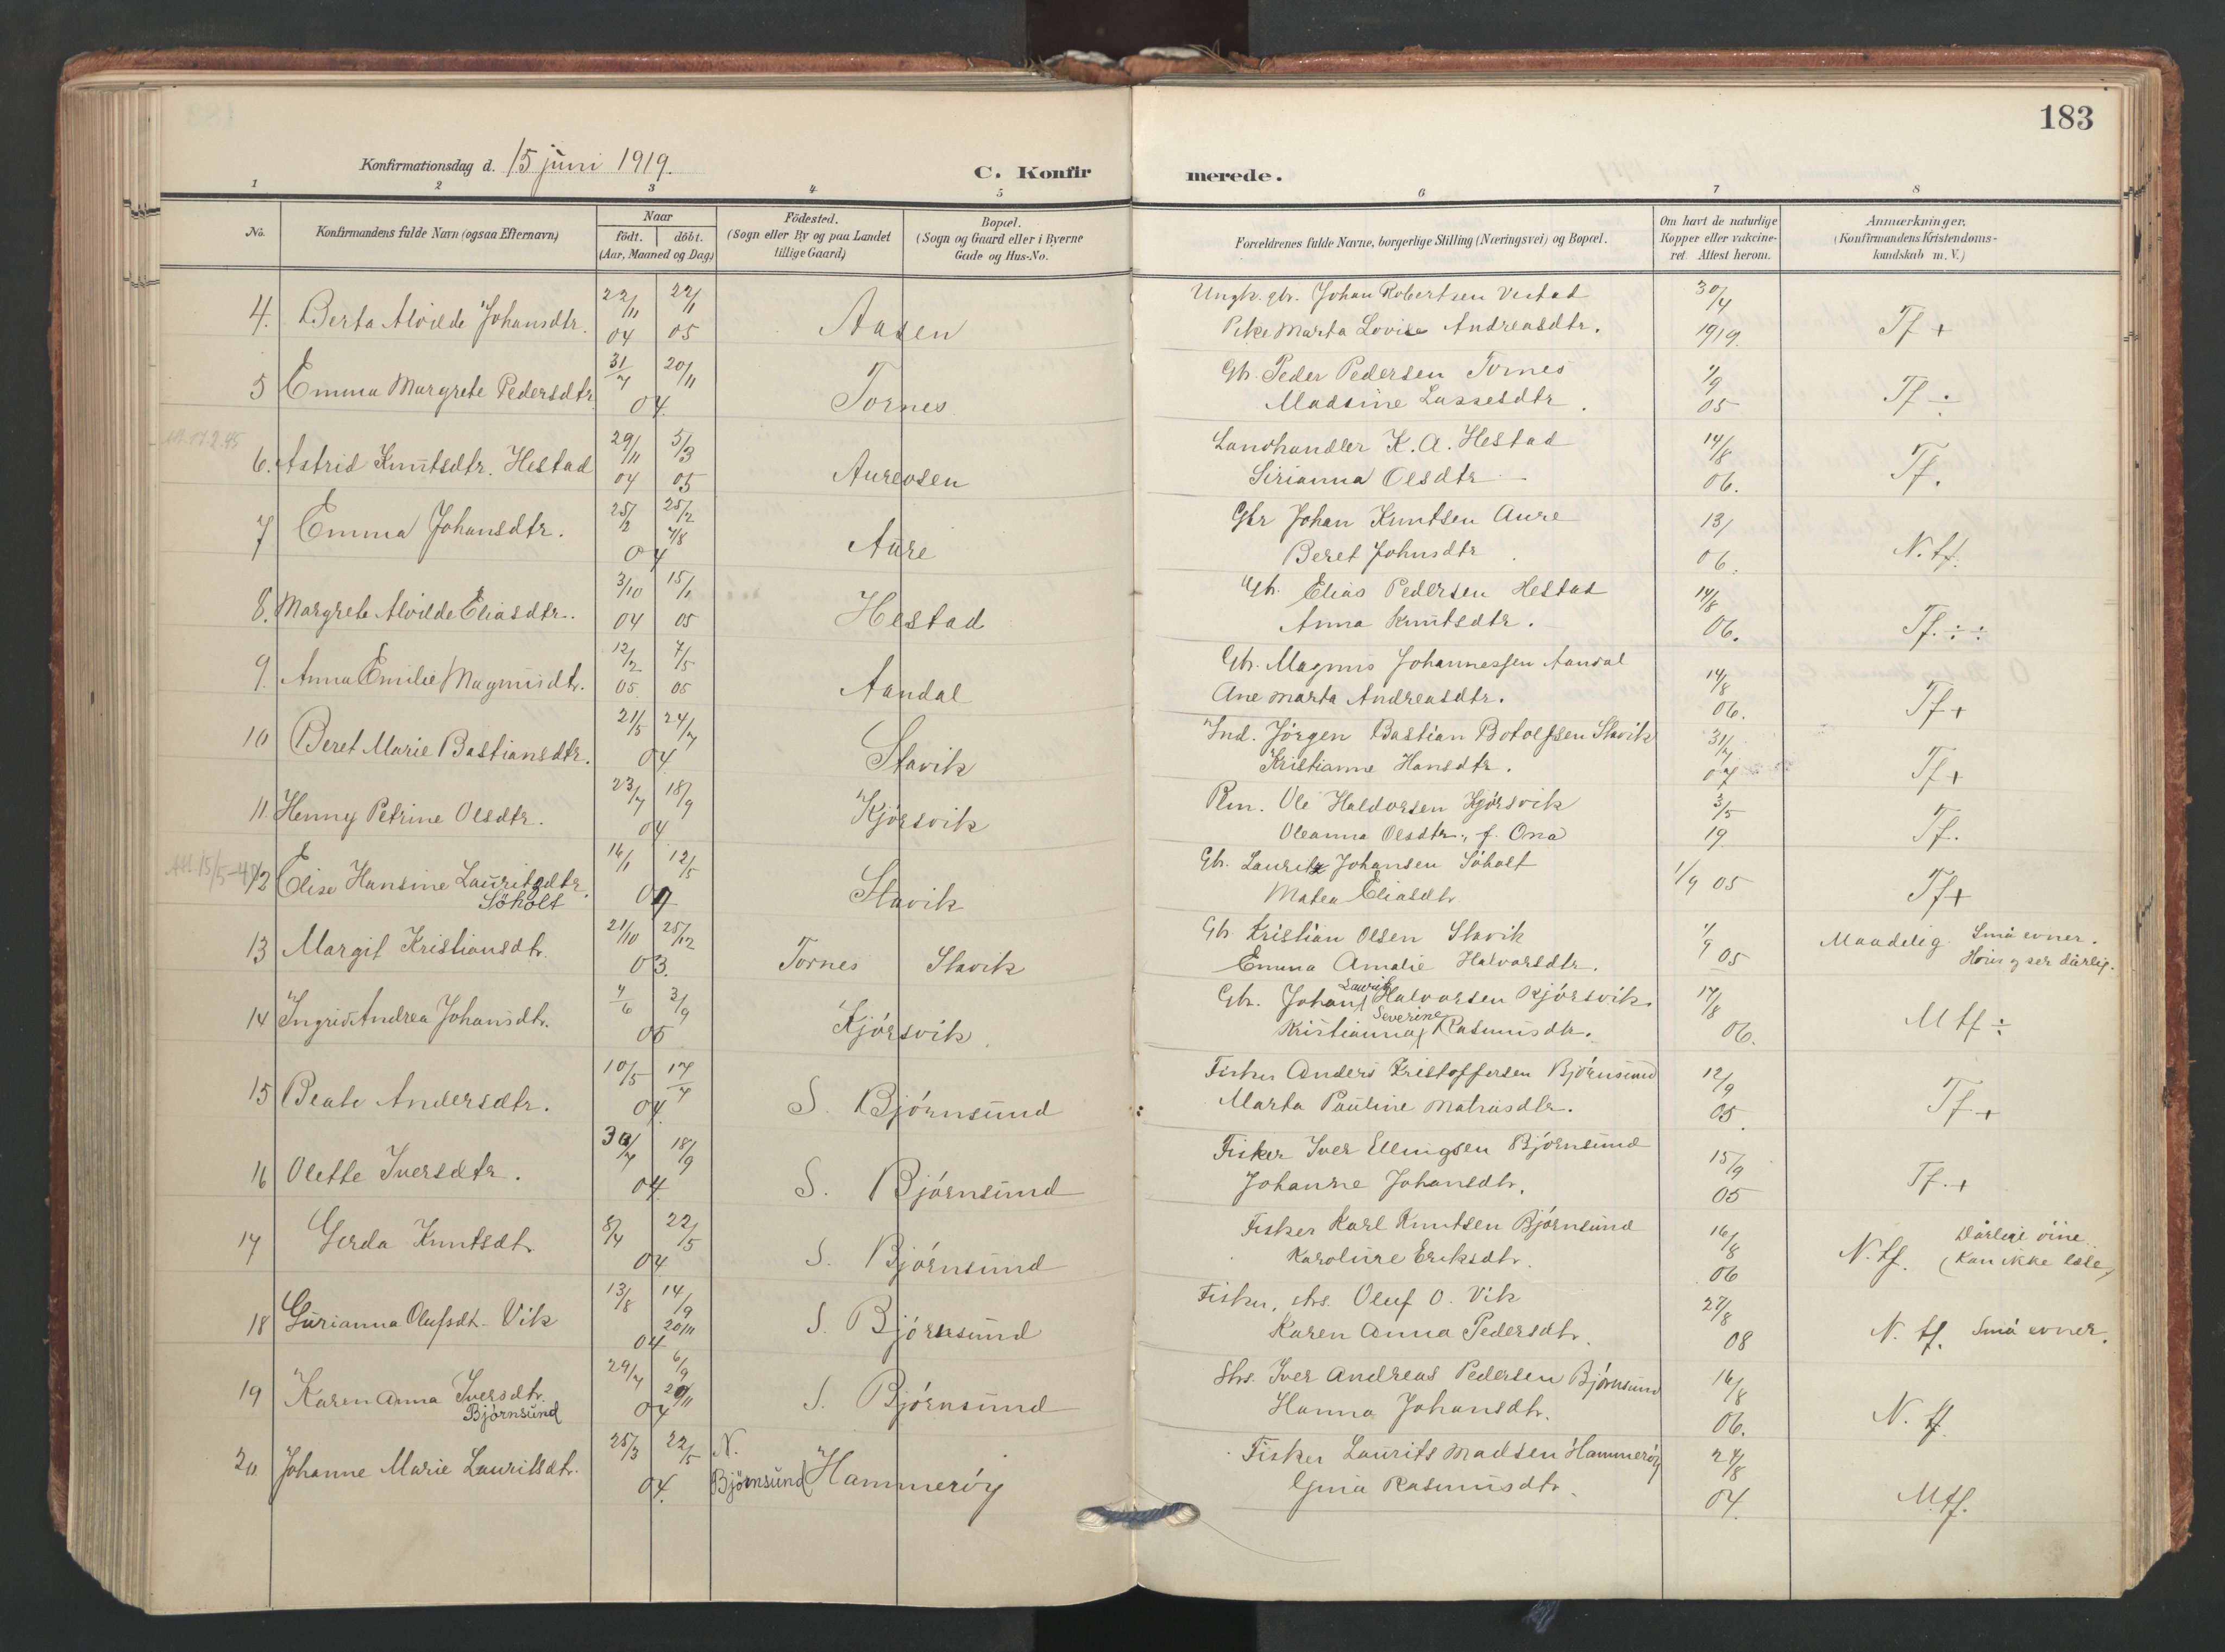 183
Konfirmationsdag d. 15 juni 1919.
C. Konfirmerede.
1 2 3 4 5 6 7 8
No.
Konfirmandens fulde Navn (ogsaa Efternavn)
Naar
födt. döbt.
(Aar, Maaned og Dag)
Födested.
(Sogn eller By og paa Landet
tillige Gaard)
Bopæl.
(Sogn og Gaard eller i Byerne
Gade og Hus-No.
Forældrenes fulde Navne, borgerlige Stilling (Næringsvei) og Bopæl.
Om havt de naturlige
Kopper eller vakcine-
ret. Attest herom.
Anmærkninger,
(Konfirmandens Kristendoms-
kundskab m. V.)
4. Berta Alvilde Johansdtr. 22/11 04 22/1 05 Aasen
Ungk. gbr. Johan Robertsen Vestad 30/4
Pike Marta Lovise Andreasdtr. 1919. Tf +
5 Emma Margrete Pedersdtr. 31/7 20/11 04. Tornes
Gb. Peder Pedersen Tornes 1/9
Madsine Lassesdtr. 05 Tf ÷
6. Astrid Knutsdtr. Hestad 29/11 04 5/3 05 Aureosen
Landhandler K. A. Hestad 14/8
Sirianna Olsdtr 06. Tf.
7 Emma Johansdtr. 25/2 25/2 7/8 04 Aure
Gbr Johan Knutsen Aure 13/
Beret Johnsdtr 06. N. tf.
8. Margrete Alvilde Eliasdtr. 3/10 04 15/1 05 Hestad
Gb. Elias Pedersen Hestad 14/8
Anna Knutsdtr. 06. Tf. ÷ ÷
9. Anna Emilie Magnusdtr. 12/2 05 7/5 05 Aandal
Gb. Magnus Johannessen Aandal 14/8
Ane Marta Andreasdtr. 06. Tf +
10 Beret Marie Bastiansdtr. 21/5 24/7 04 Stavik
Ind. Jörgen Bastian Botolfsen Stavik 31/7
Kristianne Hansdtr. 07 Tf +
11. Henny Petrine Olsdtr. 23/7 18/9 04 Kjörsvik
Rm. Ole Haldorsen Kjörsvik 3/5
Oleanna Olsdtr., f. Ona 19. Tf.
12 Elise Hansine Lauritzdtr. 12/5 Stavik
Söholt
Gb. Lauritz Johansen Söholt
Matea Eliasdtr. 1/9 05 Tf +
13 Margit Kristiansdtr. 21/10 25/12 03. Tornes Stavik
Gb. Kristian Olsen Stavik 1/9 05
Emma Amalie Halvorsdtr. Maadelig. Små evner.
Höris og ser dårlig.
14 Ingrid Andrea Johansdtr. 3/9 05 Kjörsvik.
Gb. Johan Laurits Halvorsen Kjörsvik. 14/8
Kristianna Severine Rasmusdtr. 06. M tf ÷
15 Beate Andersdtr. 10/5 17/7 04. S. Björnsund
Fisker Anders Kristoffersen Björnsund 12/9
Marta Pauline Matiasdtr. 05. Tf +
16 Olette Iversdtr. 30/7 18/9 04. S. Björnsund
Fisker Iver Ellingsen Björnsund 15/9
Johanne Johansdtr. 05 Tf. +
17 Gerda Knutsdtr. 8/4 22/5 04 S. Björnsund
Fisker Karl Knutsen Björnsund 16/8
Karoline Eriksdtr. 06 N. tf. Dårlige öine.
(Kan ikke läse)
18 Gurianna Olufsdt. Vik 13/8 14/9 20/11 04 S. Björnsund
Fisker, strs. Oluf O. Vik 27/8
Karen Anna Pedersdtr. 08 N. tf. Små evner.
19 Karen Anna Iversdtr. 29/7 6/9 20/11 04 S. Björnsund
Björnsund
Strs. Iver Andreas Pedersen Björnsund 16/8
Hanna Johansdtr. 06. N. tf
20 Johanne Marie Lauritsdtr. 25/3 22/5 04. N. Björnsund Hammeröy
Fisker Laurits Madsen Hammeröy 24/8
Gina Rasmusdtr. 04. M. tf.